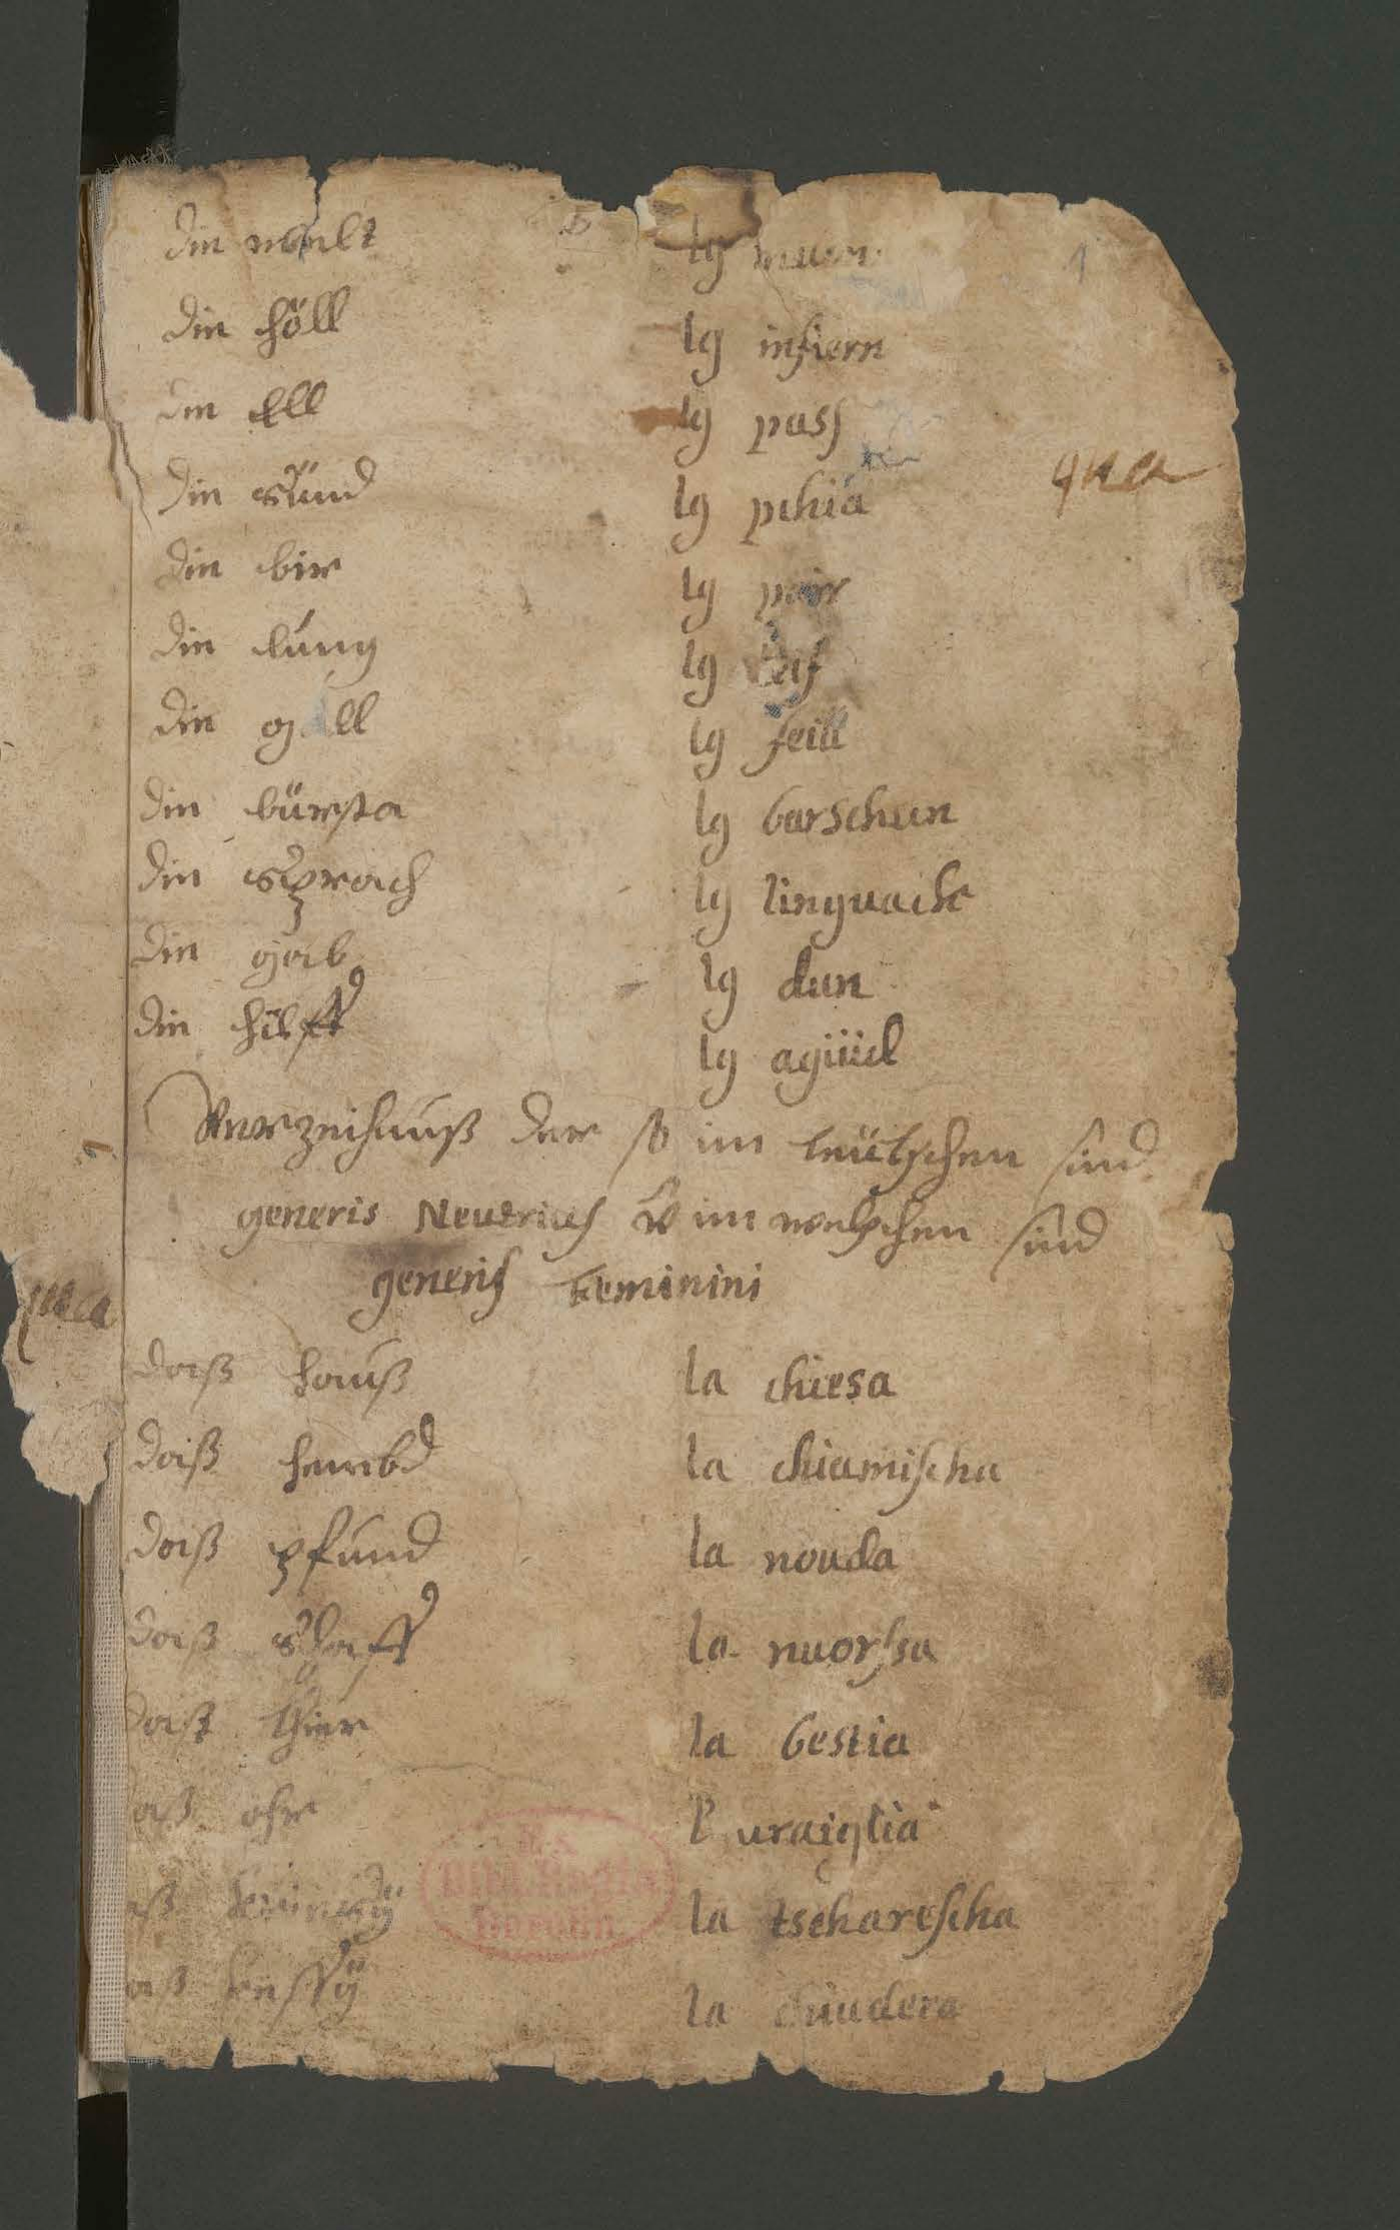 die wält lg muon
die höll lg infiern
die Ell lg pass
die sünd lg pchia
qua
die bir lg pair
die lúng lg
die gall lg feill
die bürsta lg barschun
die sprach lg linguach
die gab lg dun
die hilff lg agiüd
Verzeichnúß der so im teütschen sind
generis Neutrius v̄ im welschen sind
generis Feminini
daß haúß la chiesa
daß hembd la chiamischa
daß pfúnd la nouda
daß schaff la nuorsa
daß thier la bestia
aß ohr l' uraiglia
aß la tscharescha
aß kessÿ la chiudera